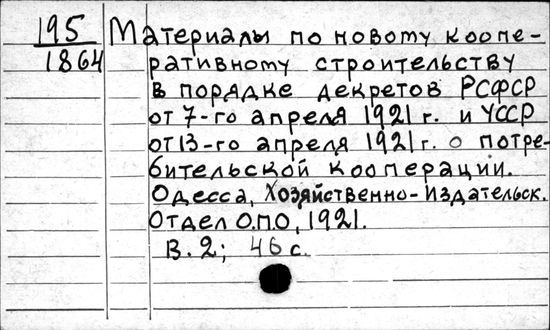 195 Материалы по новому коопе-
1864 ративному строительству
в порядке декретов РСФСР
от 7-го апреля 1921 г. и УССР
от 13-го апреля 1921 г. о потре-
бительской кооперации.
Одесса, Хозяйственно-Издательск.
Отдел О.П.О, 1921.
В. 2; 46 с.